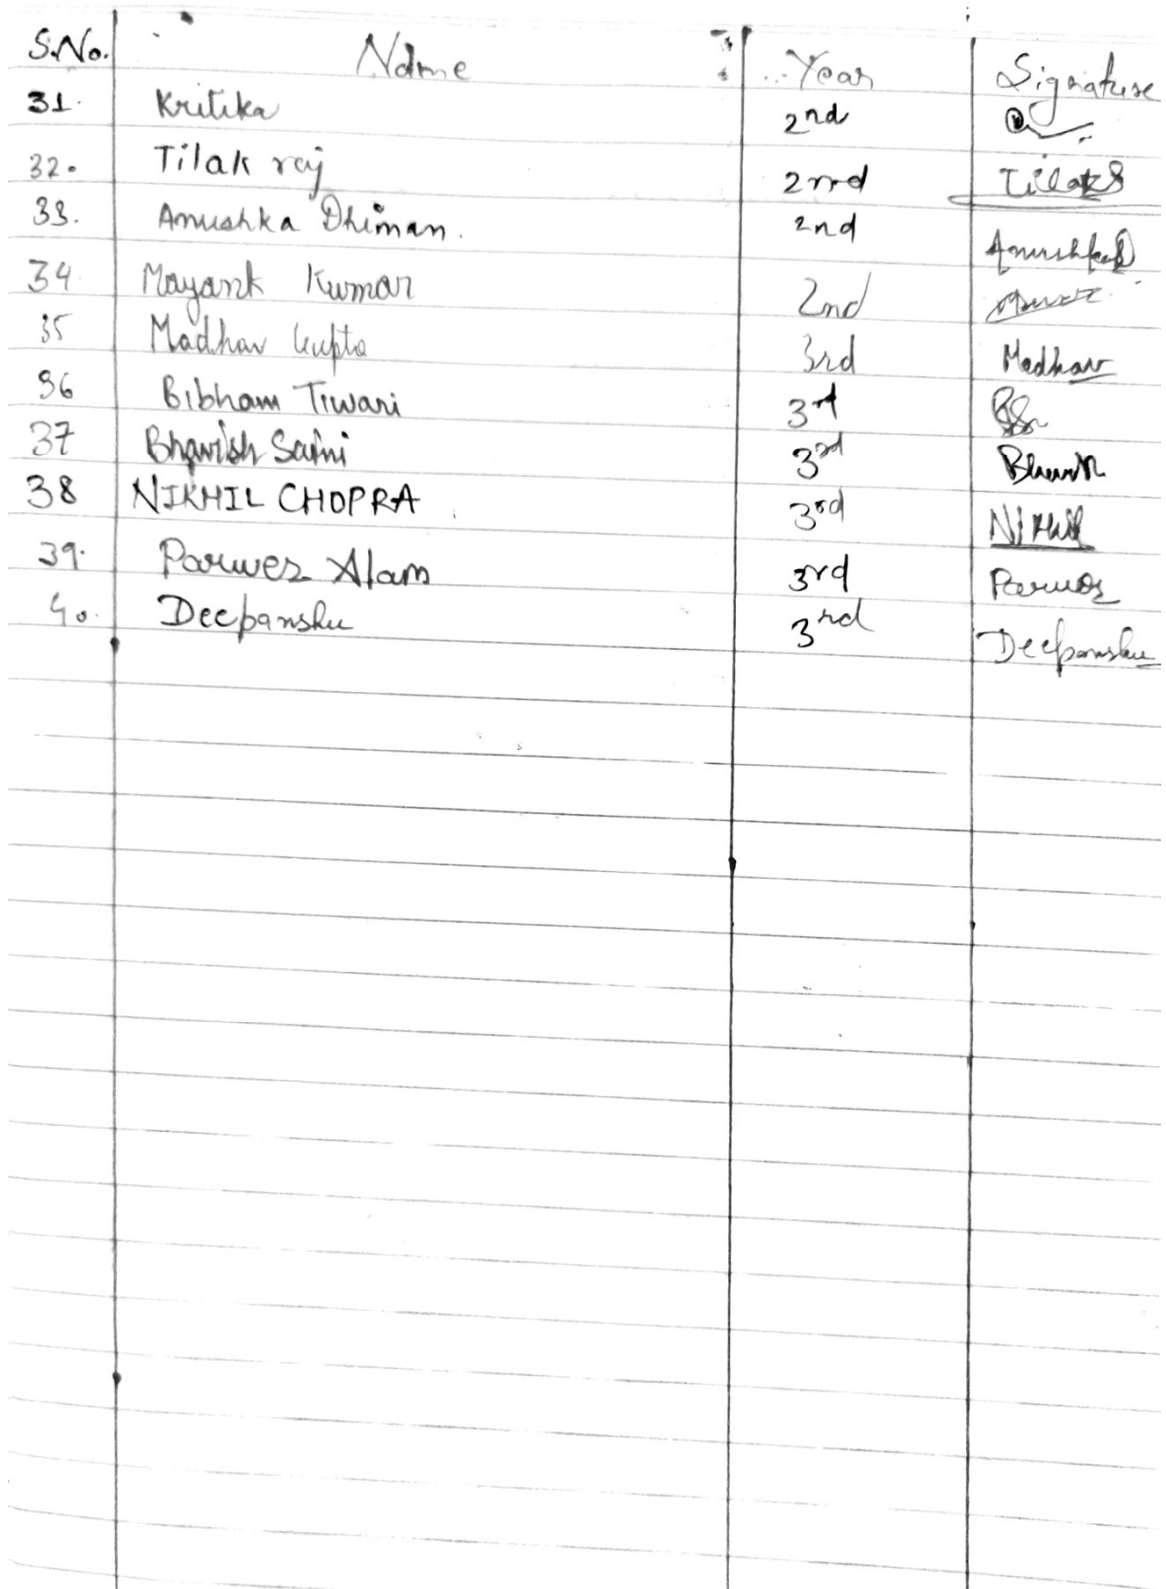 S.No. Name Year Signature
31. Kritika 2nd
32. Tilak raj 2nd Tilak
33. Anushka Dhiman. 2nd Anushka
34. Mayank Kumar 2nd
35 Madhav Gupta 3rd Madhav
36 Bibham Tiwari 3rd
37 Bhavish Saini 3rd
38 NIKHIL CHOPRA 3rd Nikhil
39. Parwez Alam 3rd Parwez
40. Deepanshu 3rd Deepanshu